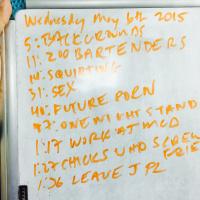 Wednesday May 6th 2015
5: BACKGROUNDS
11: 200 BARTENDERS
14: SQUIRTING
31: SEX
40: FUTURE PORN
47: ONE NIGHT STAND
1:17 WORK AT MCD
1:27 CHICKS WHO SCREW
1:36 LEAVE J PL